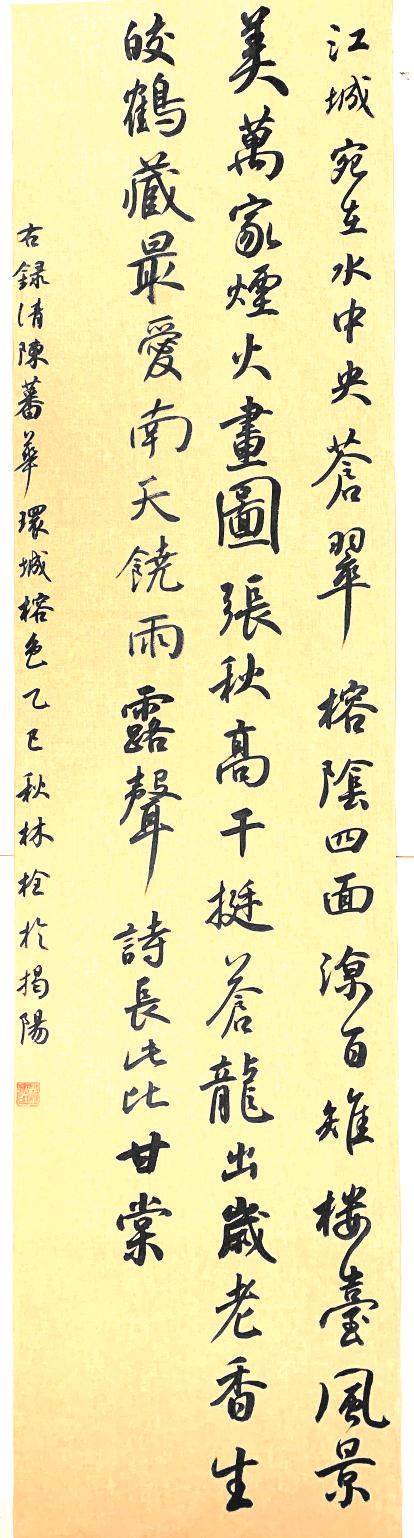 江城宛在水中央蒼翠榕陰四面涼百雉楼臺風景
美萬家煙火畫圖張秋高干挺蒼龍出歲老香生
皎鶴藏最愛南天饒雨露聲詩長此比甘棠
右録清陳蕃華環城榕色乙巳秋林栓於揭陽